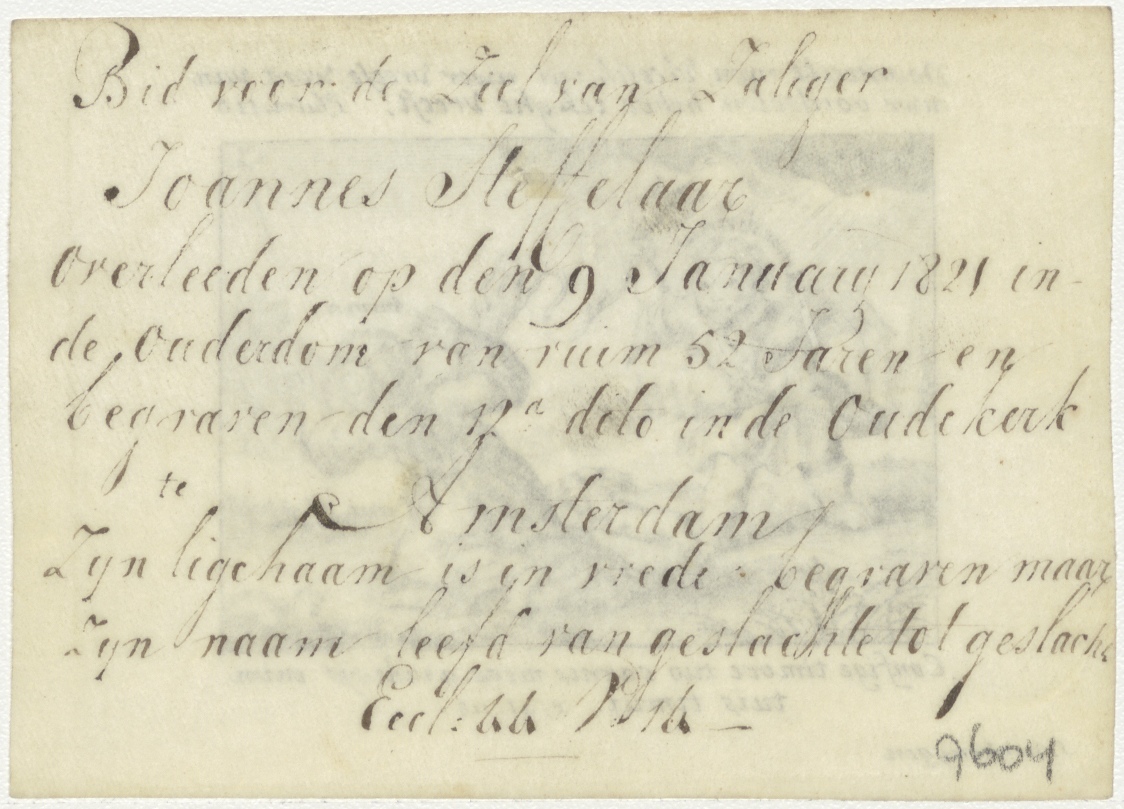 Bid voor de Ziel van Zaliger
Joannes Steffelaar
overleeden op den 9 January 1821 in
de Ouderdom van ruim 52 Jaren en
begraven den 12ⁿ dito in de Oudekerk
te Amsterdam
Zyn ligchaam is in vrede begraven maar
Zyn naam leefd van geslachte tot geslacht
Eccl: 44 V 14
9604